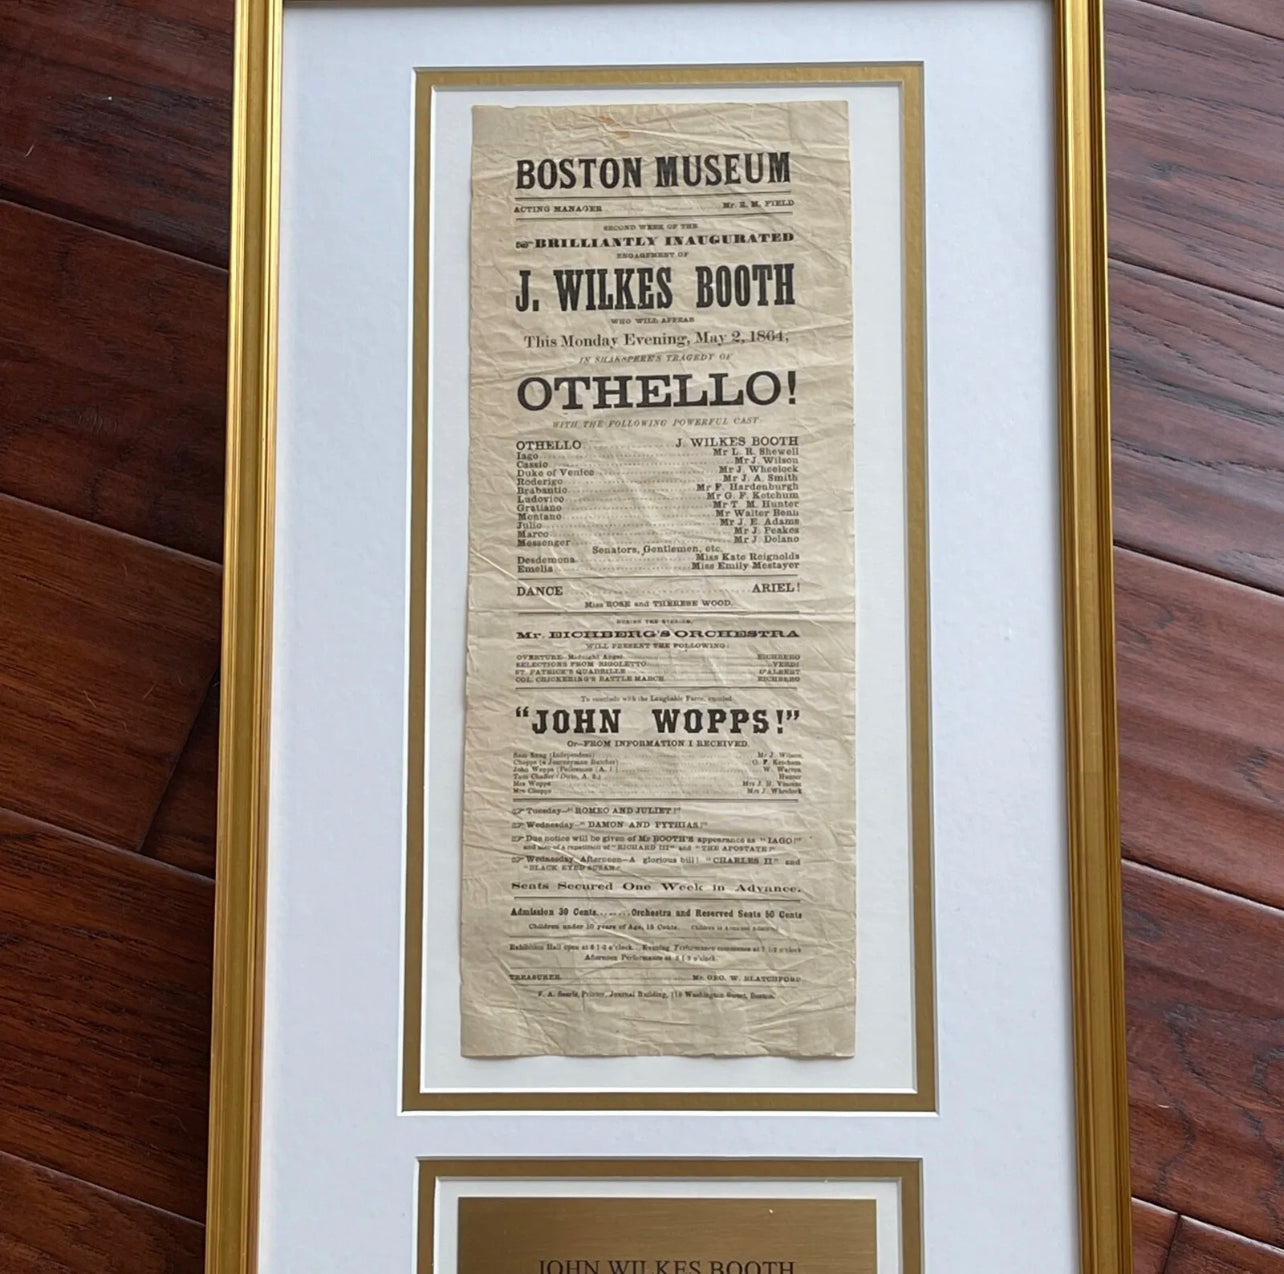 BOSTON MUSEUM
ACTING MANAGER Mr. E. M. FIELD
SECOND WEEK OF THE
☞BRILLIANTLY INAUGURATED
ENGAGEMENT OF
J. WILKES BOOTH
WHO WILL APPEAR
This Monday Evening, May 2, 1864,
IN SHAKSPERE'S TRAGEDY OF
OTHELLO!
WITH THE FOLLOWING POWERFUL CAST
OTHELLO J. WILKES BOOTH
Iago Mr L. R. Shewell
Cassio Mr J. Wilson
Duke of Venice Mr J. Wheelock
Roderigo Mr J. A. Smith
Brabantio Mr F. Hardenburgh
Ludovico Mr G. F. Ketchum
Gratiano Mr T. M. Hunter
Montano Mr Walter Benn
Julio Mr J. E. Adams
Marco Mr J. Peakes
Messenger Mr J. Delano
Senators, Gentlemen, etc.
Desdemona Miss Kate Reignolds
Emelia Miss Emily Mestayer
DANCE ARIEL!
Miss ROSE and THERESE WOOD.
DURING THE EVENING,
Mr. EICHBERG'S ORCHESTRA
WILL PRESENT THE FOLLOWING:
OVERTURE—Midnight Angel EICHBERG
SELECTIONS FROM RIGOLETTO VERDI
ST. PATRICK'S QUADRILLE D'ALBERT
COL. CHICKERING'S BATTLE MARCH EICHBERG
To conclude with the Laughable Farce, entitled
"JOHN WOPPS!"
Or—FROM INFORMATION I RECEIVED.
Sam (Independent) Mr J. Wilson
Choppe (a Journeyman Butcher) G. F. Ketchum
John Wopps (Policeman (A. 1) W. Warren
Tom Chaffer (Ditto, A. 2.) Hunter
Mrs Wopps Mrs J. R. Vincent
Mrs Choppe Mrs J. Wheelock
☞ Tuesday—"ROMEO AND JULIET!"
☞ Wednesday—"DAMON AND PYTHIAS!"
☞ Due notice will be given of Mr BOOTH'S appearance as "IAGO!"
and also of a repetition of "RICHARD III" and "THE APOSTATE!"
☞ Wednesday Afternoon—A glorious bill! "CHARLES II" and
"BLACK EYED SUSAN."
Seats Secured One Week in Advance.
Admission 30 Cents.......Orchestra and Reserved Seats 50 Cents
Children under 10 years of Age, 15 Cents.
Exhibition Hall open at 6 1-2 o'clock. Evening Performance commence at 7 1-2 o'clock
Afternoon Performance at o'clock.
TREASURER Mr. GEO. W. BLATCHFORD
F. A. Searle, Printer, Journal Building, 118 Washington Street, Boston.
JOHN WILKES BOOTH